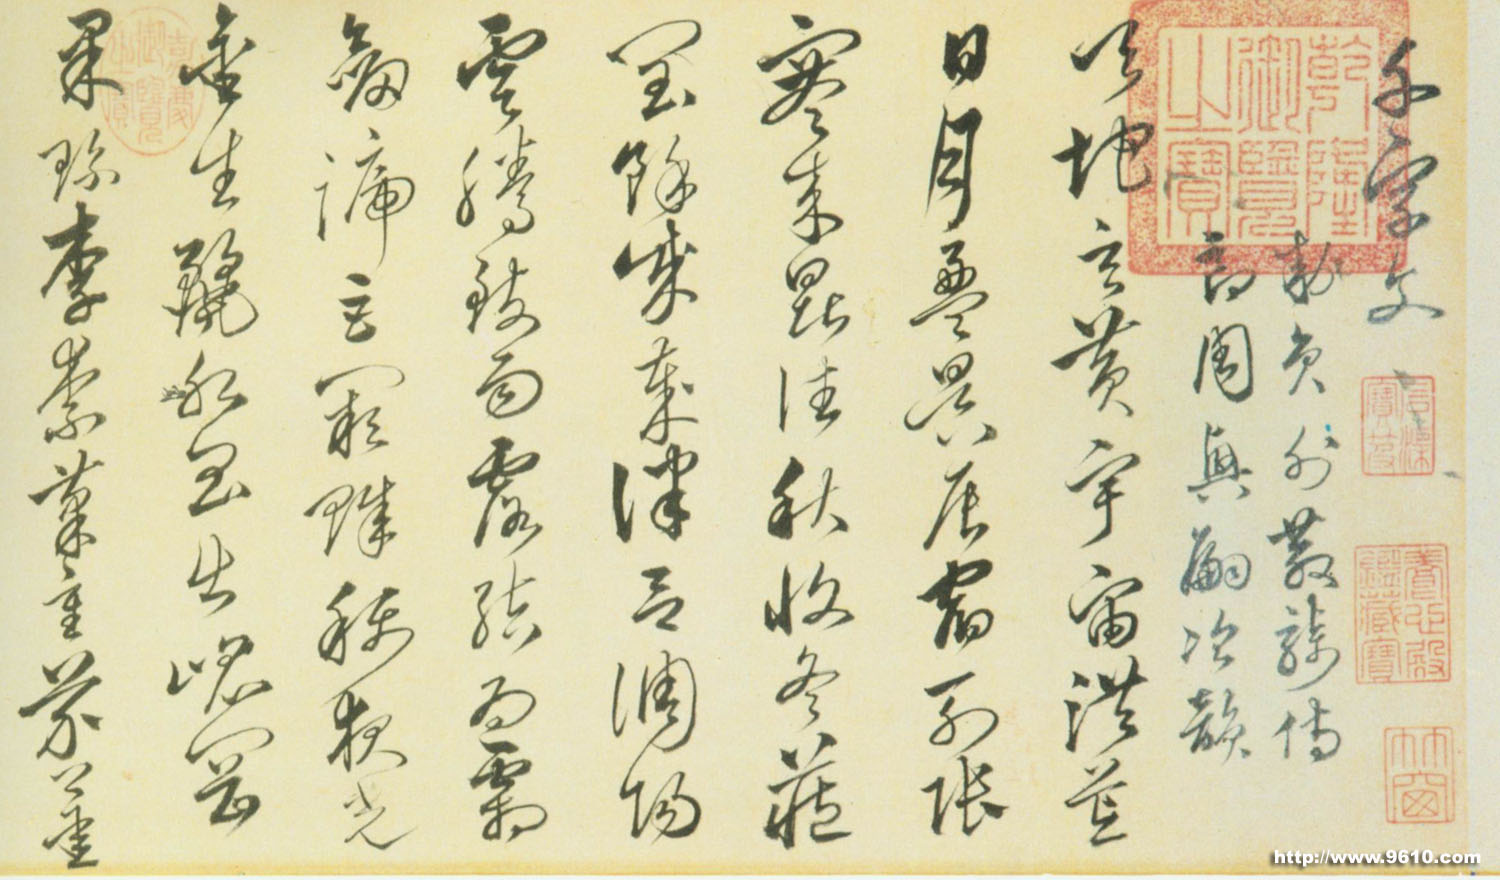 千字文
乾隆御覽之寶
石渠寶笈
養心殿鑑藏寶
竹窗
勅員外散騎侍
郎周興嗣次韻
天地玄黃宇宙洪荒
日月盈昃辰宿列張
寒來暑往秋收冬藏
閏餘成歲律呂調陽
雲騰致雨露結為霜
劒號巨闕珠稱夜光
金生麗水玉出崐岡
果珍李柰菜重芥薑
嘉慶御覽之寶
http://www.9610.com